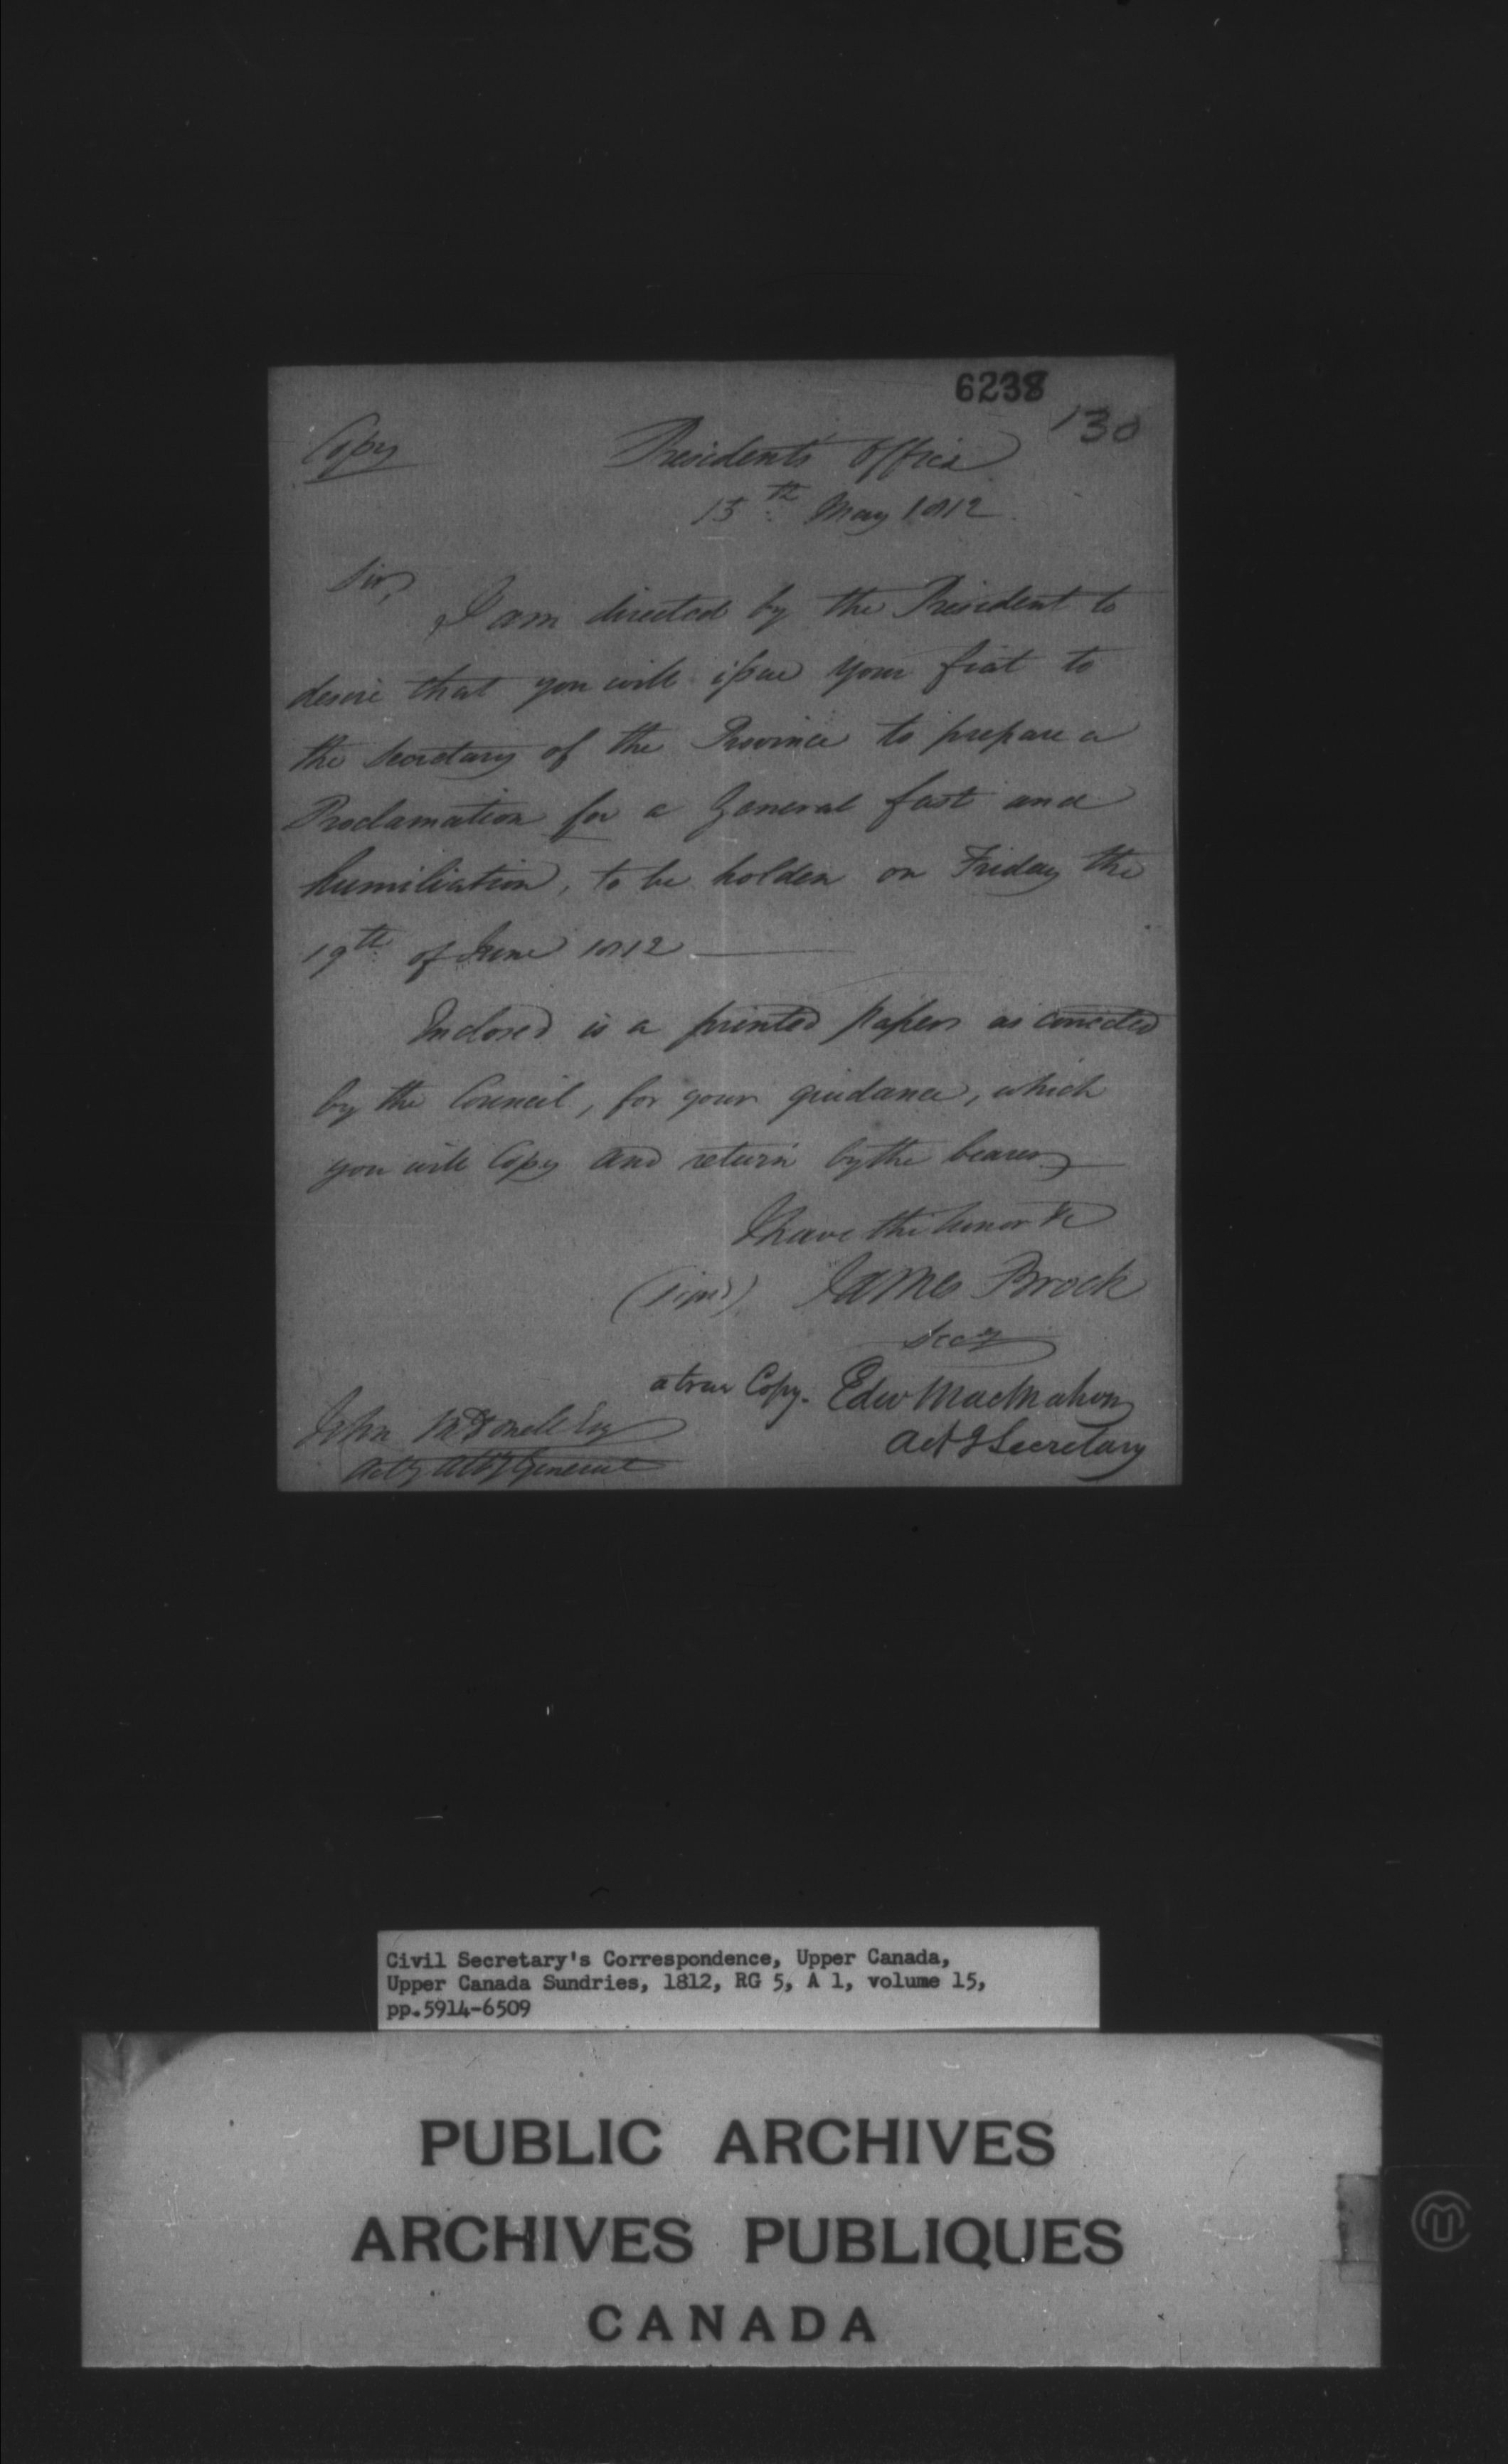 6238
130
Copy
Presidents Office
15th May 1812
Sir,
I am directed by the President to
desire that you will issue your fiat to
the Secretary of the Province to prepare a
Proclamation for a General fast and
humiliation, to be holden on Friday the
19th of June 1812
Inclosed is a printed paper as corrected
by the Council, for your guidance, which
you will Copy and return by the bearer
I have the honor &c
(Signd) James Brock
Secy
a true Copy. Edw MacMahon
Actg Secretary
John McDonell Esqr
Actg Atty General
Civil Secretary's Correspondence, Upper Canada,
Upper Canada Sundries, 1812, RG 5, A 1, volume 15,
pp.5914-6509
PUBLIC ARCHIVES
ARCHIVES PUBLIQUES
CANADA